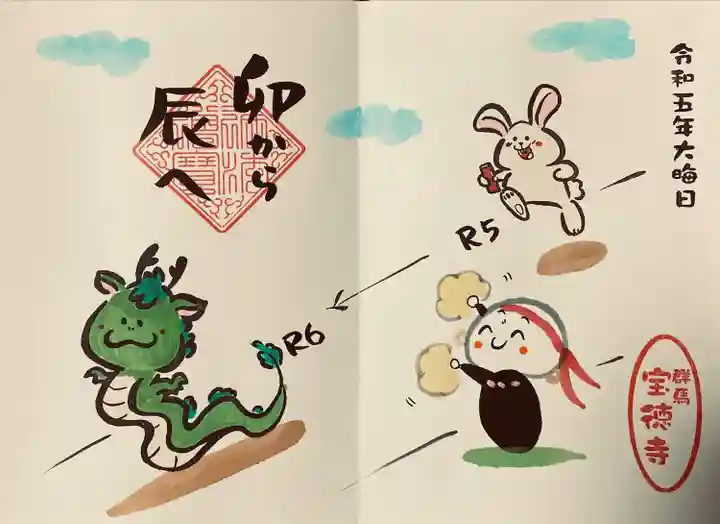 令和五年大晦日
卯から
辰へ
R5
R6
群馬
宝徳寺